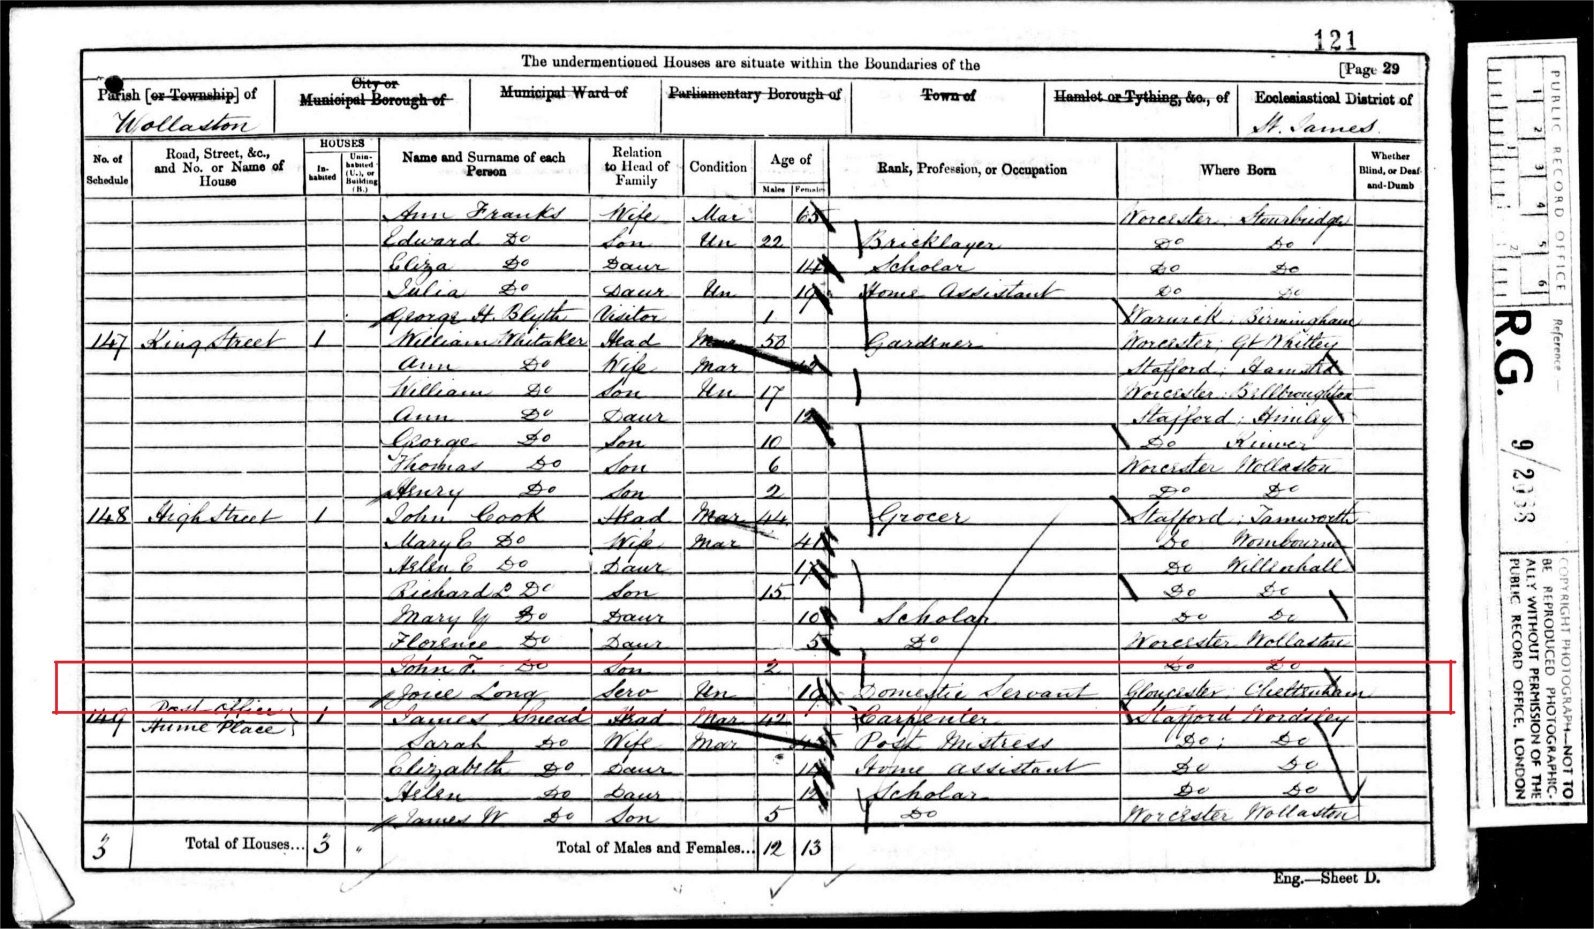 121
The undermentioned Houses are situate within the Boundaries of the
[Page 29
Parish [or Township] of
City or Municipal Borough of
Municipal Ward of
Parliamentary Borough of
Town of
Hamlet or Tything, &c., of
Ecclesiastical District of
Wollaston
St. James
No. of Schedule
Road, Street, &c., and No. or Name of House
HOUSES
In-habited
Unin-habited (U.), or Building (B.)
Name and Surname of each Person
Relation to Head of Family
Condition
Age of
Males
Females
Rank, Profession, or Occupation
Where Born
Whether Blind, or Deaf-and-Dumb
Ann Franks Wife Mar 65 Worcester; Stourbridge
Edward Do Son Un 22 Bricklayer Do Do
Eliza Do Daur 14 Scholar Do Do
Julia Do Daur Un 19 Home Assistant Do Do
George H. Blyth Visitor 1 Warwick; Birmingham
147 King Street 1 William Whitaker Head Mar Gardener Worcester; Gt Whitley
Ann Do Wife Mar Stafford;
William Do Son Un 17 Worcester; Bellbroughton
Ann Do Daur 12 Stafford; Himley
George Do Son 10 Do Kinver
Thomas Do Son 6 Worcester Wollaston
Henry Do Son 2 Do Do
148 High Street 1 John Cook Head Mar 44 Grocer Stafford; Tamworth
Mary E Do Wife Mar 41 Do Wombourne
Helen E Do Daur 17 Do Willenhall
Richard L Do Son 15 Do Do
Mary Y Do Daur 10 Scholar Do Do
Florence Do Daur 5 Do Worcester Wollaston
John F. Do Son 2 Do Do
Joice Long Serv Un 19 Domestic Servant Gloucester; Cheltenham
149 Post Office Hume Place 1 James Snead Head Mar 42 Carpenter Stafford Wordsley
Sarah Do Wife Mar Post Mistress Do; Do
Elizabeth Do Daur 14 Home Assistant Do Do
Helen Do Daur 12 Scholar Do Do
James W Do Son 5 Do Worcester Wollaston
3 Total of Houses... 3 Total of Males and Females... 12 13
Eng.—Sheet D.
PUBLIC RECORD OFFICE
1 2 3 4 5 6
1 2
Reference
R.G. 9/2068
COPYRIGHT PHOTOGRAPH—NOT TO
BE REPRODUCED PHOTOGRAPHIC-
ALLY WITHOUT PERMISSION OF THE
PUBLIC RECORD OFFICE, LONDON